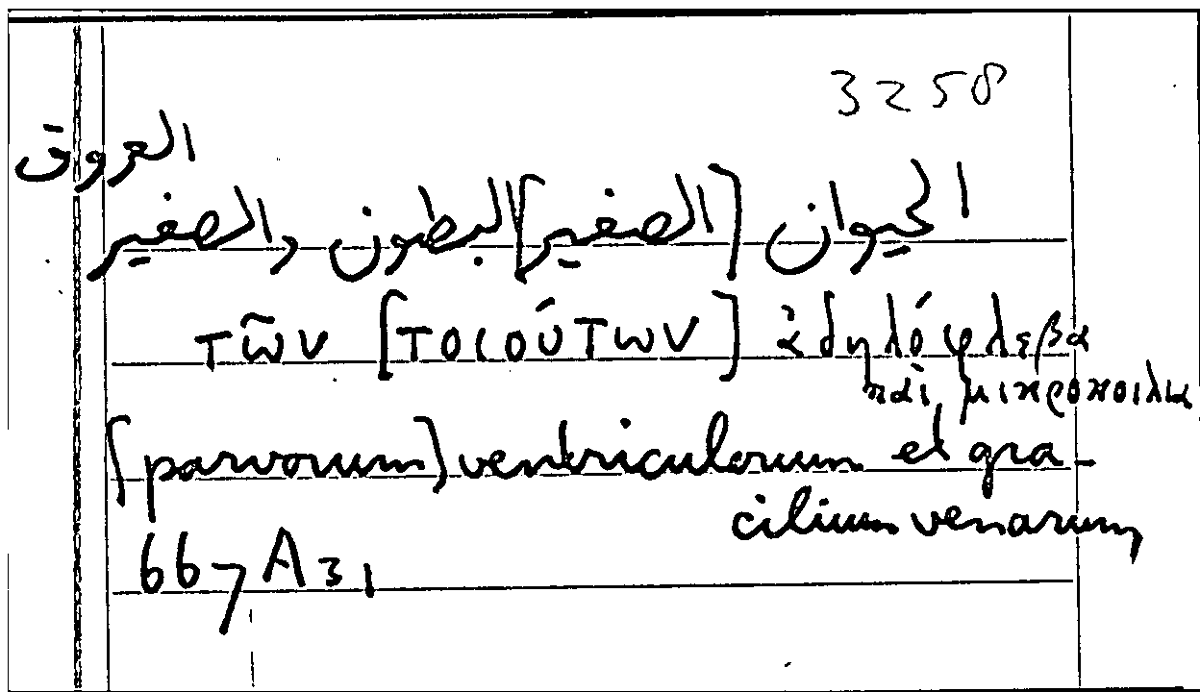 3258
الحيوان [الصغير] البطون والصغير
العروق
τῶν [τοιούτων] ἀδηλόφλεβα
καὶ μικροκοιλια
[parvorum] ventriculorum et gra-
cilium venarum,
667 A 31